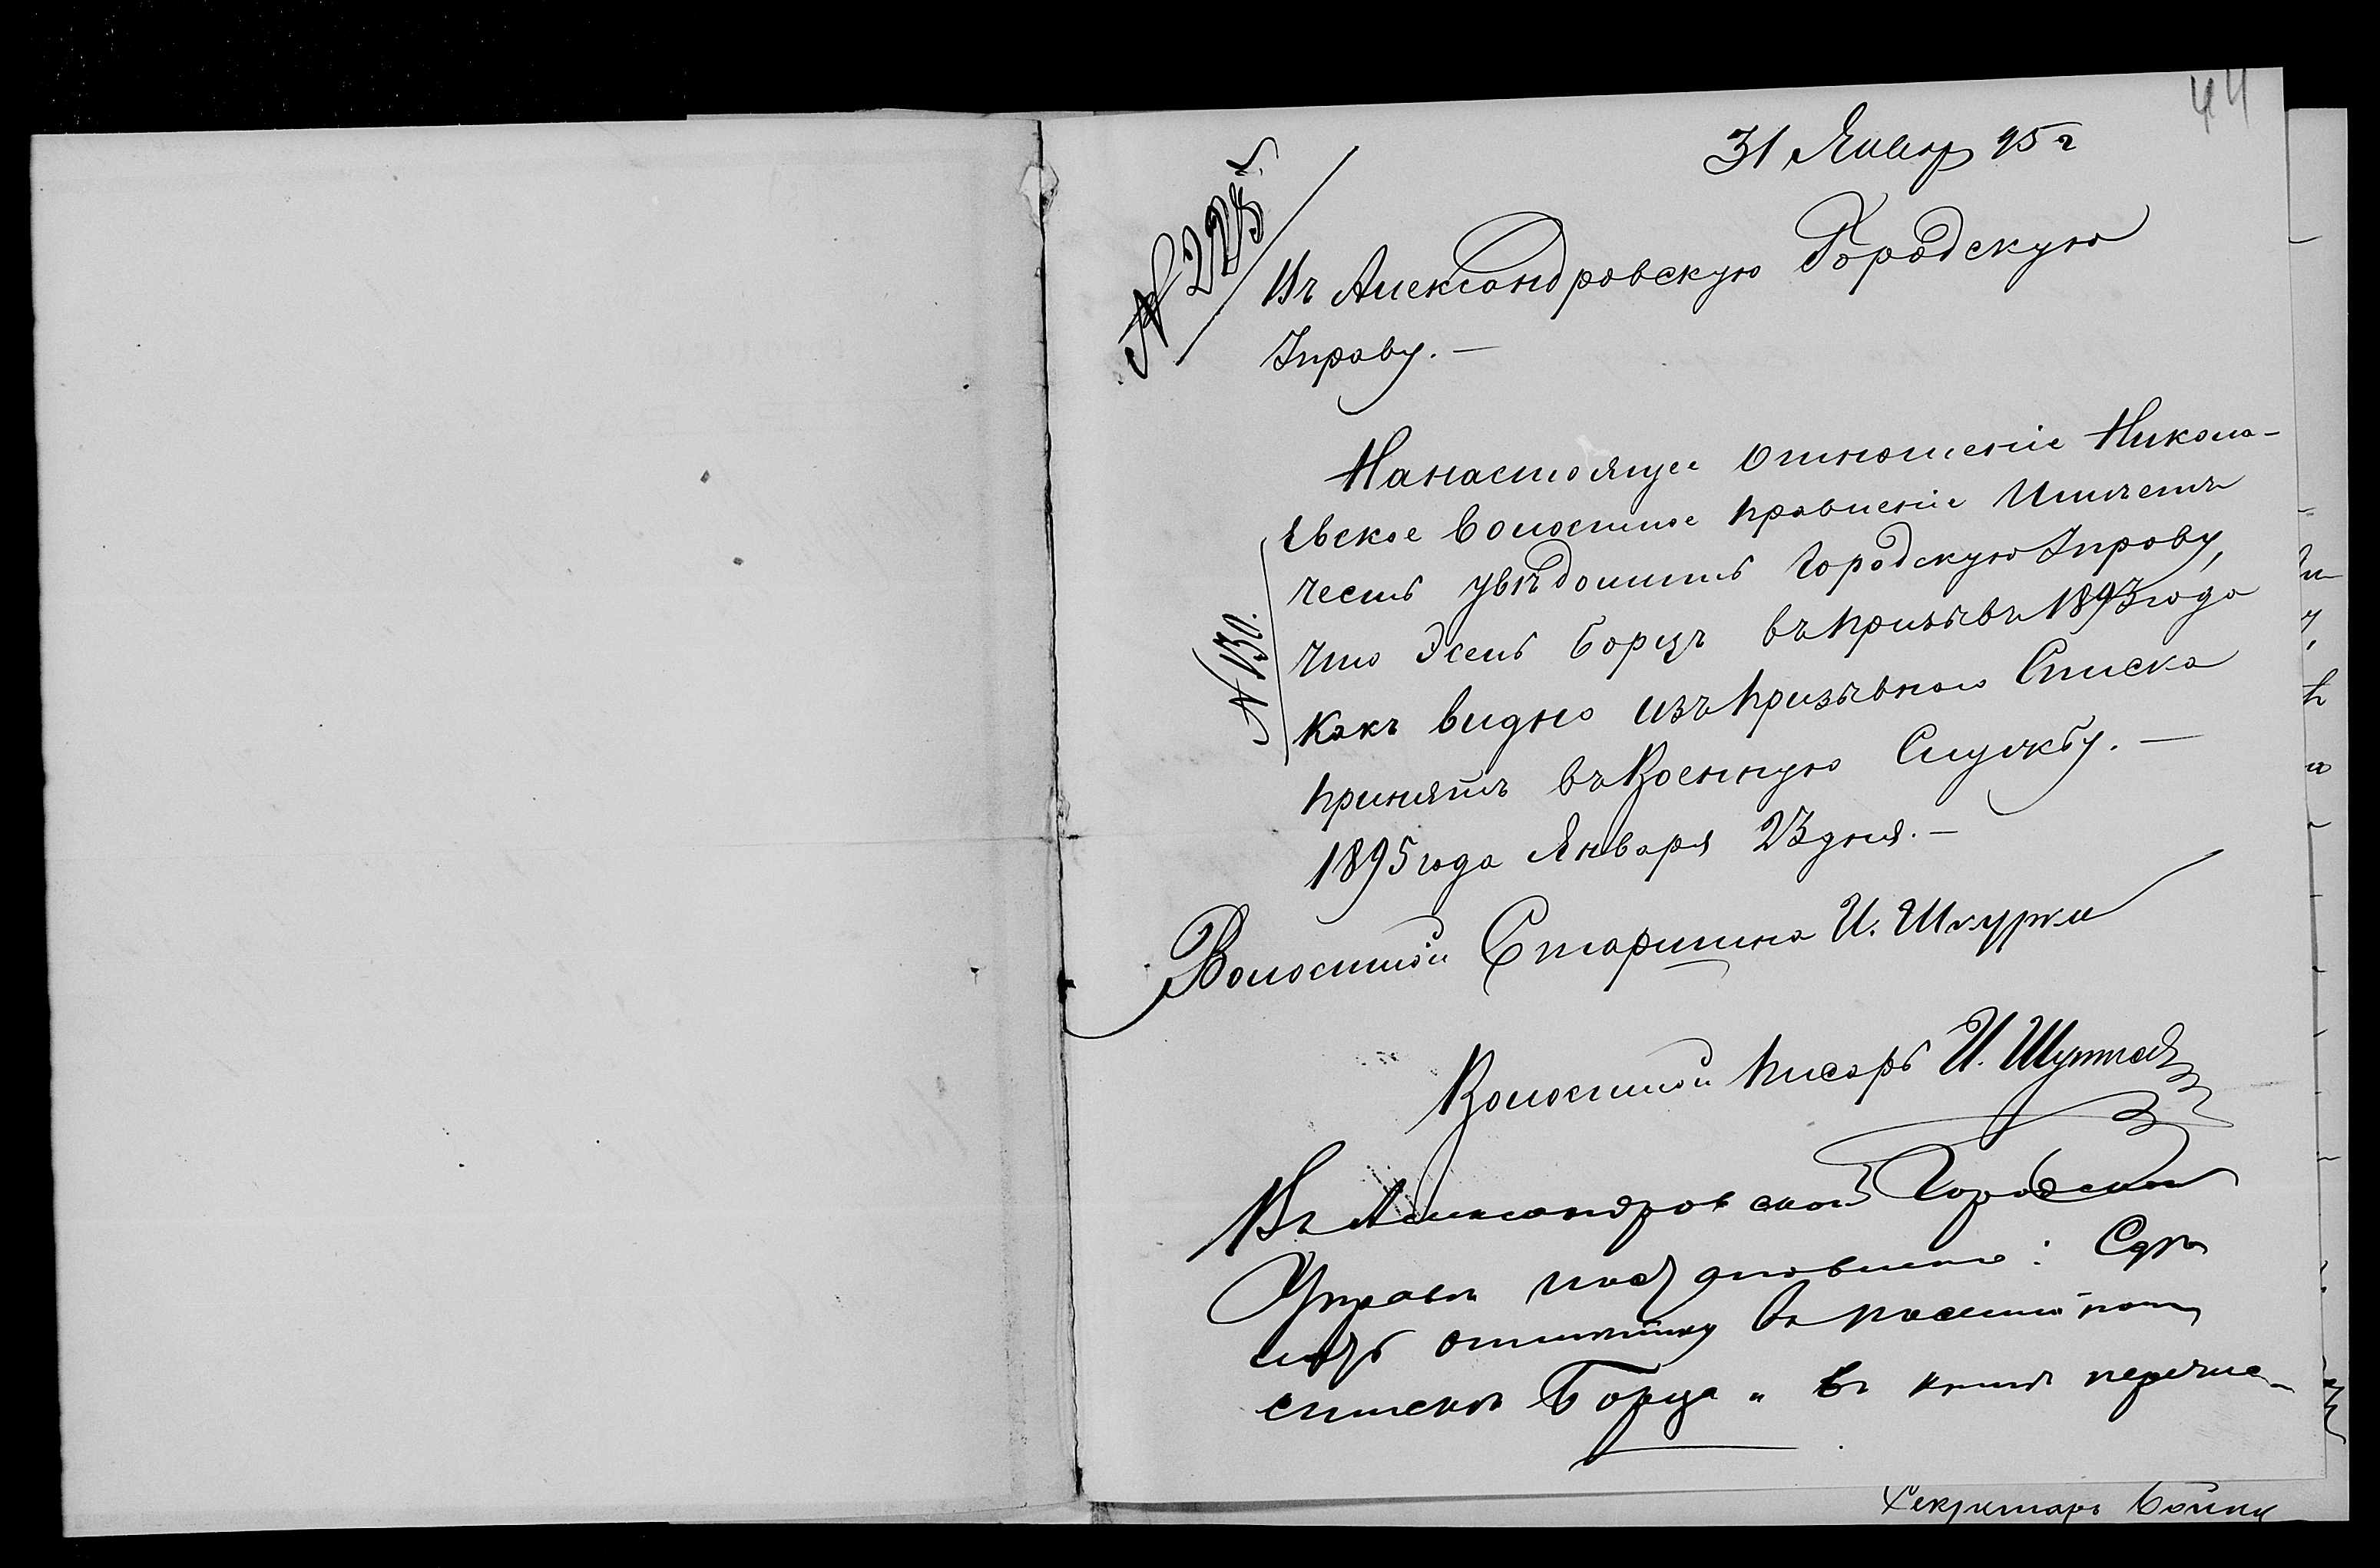 44
31 Январ 95 г
№ 225
Въ Александровскую Городскую
Управу. —
Нанастоящее отношеніе Никола-
№ 130.
евское волостное правленіе имѣетъ
честь увѣдомить Городскую Управу,
что Эсель Борцъ въ призывъ 1893 года
какъ видно изъ призывного Списка
принятъ въ Военную Службу. —
1895 года Января 23 дня. —
Волостной Старшина И. Шкурки
Волостной писарь И.
Въ Александровской Городской
Управѣ постановлено:
отмѣтку въ посемѣйном
спискѣ Борца и въ книгѣ перечис-
Секретарь